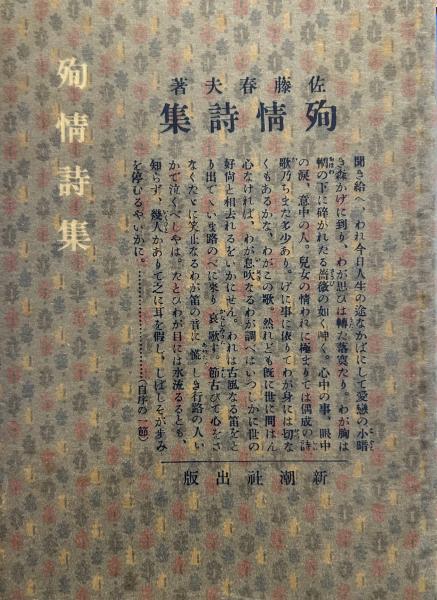 佐藤春夫著
殉情詩集
聞き給へ、われ今日人生の途なかばにして愛戀の小暗
き森かげに到り、わが思ひは轉た落寞たり。わが胸は
輞の下に碎かれたる薔薇の如く呻く。心中の事、眼中
の涙、意中の人。兒女の情われに極まりては偶成の詩
歌乃ちまた多少あり。げに事に依りてわが身には切な
くもあるかな、わがこの歌。然れども既に世に問はん
心なければ、わが息吹なるわが調べはいつしかに世の
好尙と相去れるをいかにせん。われは古風なる笛をと
り出でていま路のべに來り 哀歌す。節古びて心をさ
なくただに笑止なるわが笛の音に慌しき行路の人い
かで泣くべしやは。たとひわが目には水流るるとも、
知らず、幾人かありて之に耳を假し、しばしそが步み
を停むるやいかに。…………(自序の一節)
新潮社出版
殉情詩集